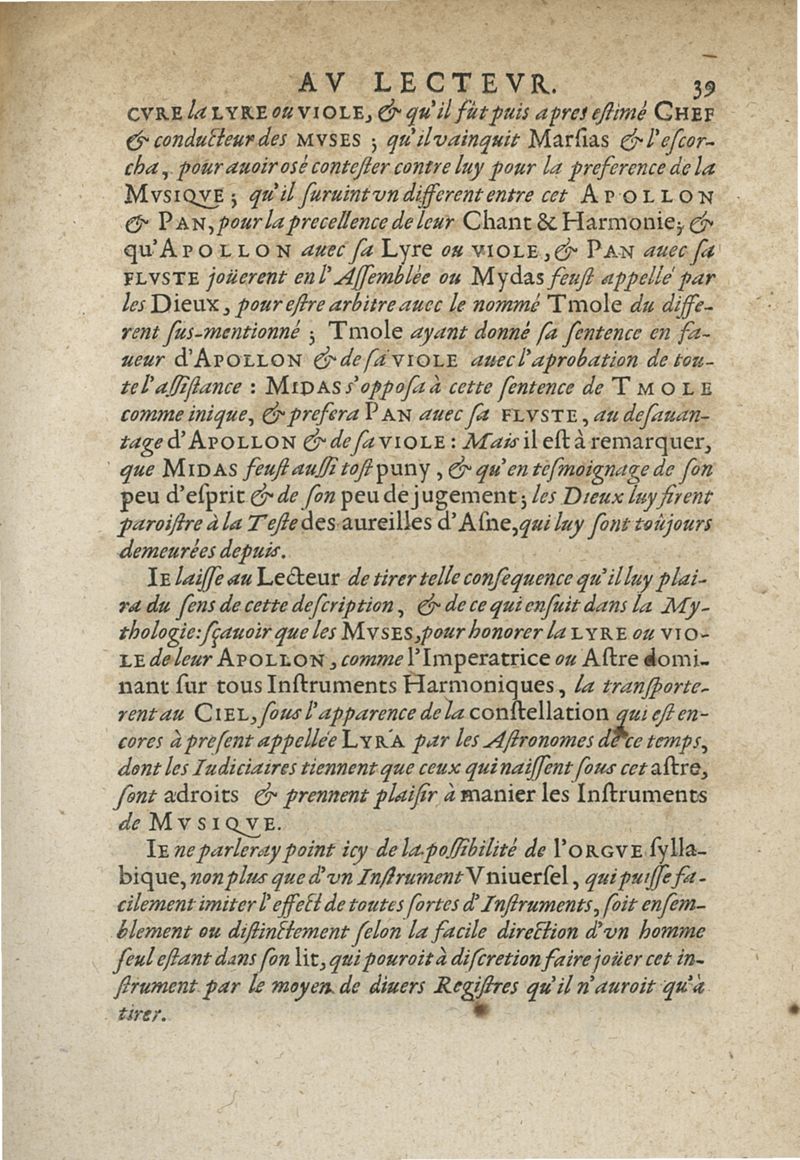 AV LECTEVR. 39
CVRE la LYRE ou VIOLE, & qu'il fût puis apres eſtimé CHEF
& conducteur des MVSES ; qu'il vainquit Marſias & l'eſcor-
cha, pour auoir osé conteſter contre luy pour la preference de la
MVSIQVE ; qu'il ſuruint vn different entre cet APOLLON
& PAN, pour la precellence de leur Chant & Harmonie ; &
qu'APOLLON auec ſa Lyre ou VIOLE, & PAN auec ſa
FLVSTE joüerent en l'Aſſemblée ou Mydas feuſt appellé par
les Dieux, pour eſtre arbitre auec le nommé Tmole du diffe-
rent ſus-mentionné ; Tmole ayant donné ſa ſentence en fa-
ueur d'APOLLON & de ſa VIOLE auec l'aprobation de tou-
te l'aſſiſtance : MIDAS s'oppoſa à cette ſentence de TMOLE
comme inique, & prefera PAN auec ſa FLVSTE, au deſauan-
tage d'APOLLON & de ſa VIOLE : Mais il eſt à remarquer,
que MIDAS feuſt auſſi toſt puny, & qu'en teſmoignage de ſon
peu d'eſprit & de ſon peu de jugement ; les Dieux luy firent
paroiſtre à la Teſte des aureilles d'Aſne, qui luy ſont toûjours
demeurées depuis.
IE laiſſe au Lecteur de tirer telle conſequence qu'il luy plai-
ra du ſens de cette deſcription, & de ce qui enſuit dans la My-
thologie: ſçauoir que les MVSES, pour honorer la LYRE ou VIO-
LE de leur APOLLON, comme l'Imperatrice ou Aſtre domi-
nant ſur tous Inſtruments Harmoniques, la tranſporte-
rent au CIEL, ſous l'apparence de la conſtellation qui eſt en-
cores à preſent appellée LYRA par les Aſtronomes de ce temps,
dont les Iudiciaires tiennent que ceux qui naiſſent ſous cet aſtre,
ſont adroits & prennent plaiſir à manier les Inſtruments
de MVSIQVE.
IE ne parleray point icy de la poſſibilité de l'ORGVE ſylla-
bique, non plus que d'vn Inſtrument Vniuerſel, qui puiſſe fa-
cilement imiter l'effect de toutes ſortes d'Inſtruments, ſoit enſem-
blement ou diſtinctement ſelon la facile direction d'vn homme
ſeul eſtant dans ſon lit, qui pouroit à diſcretion faire joüer cet in-
ſtrument par le moyen de diuers Regiſtres qu'il n'auroit qu'à
tirer.